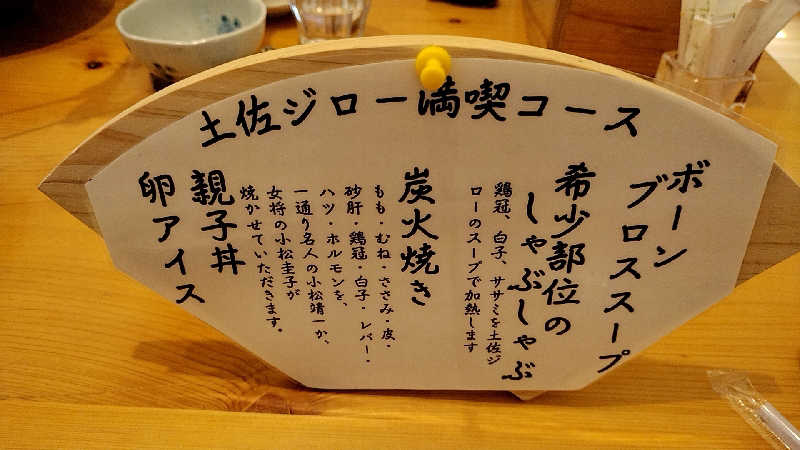 土佐ジロー満喫コース
ボーン
ブロススープ
希少部位の
しゃぶしゃぶ
鶏冠、白子、ササミを土佐ジ
ローのスープで加熱します
炭火焼き
もも・むね・ささみ・皮・
砂肝・鶏冠・白子・レバー・
ハツ・ホルモンを、
一通り名人の小松靖一か、
女将の小松圭子が
焼かせていただきます。
親子丼
卵アイス